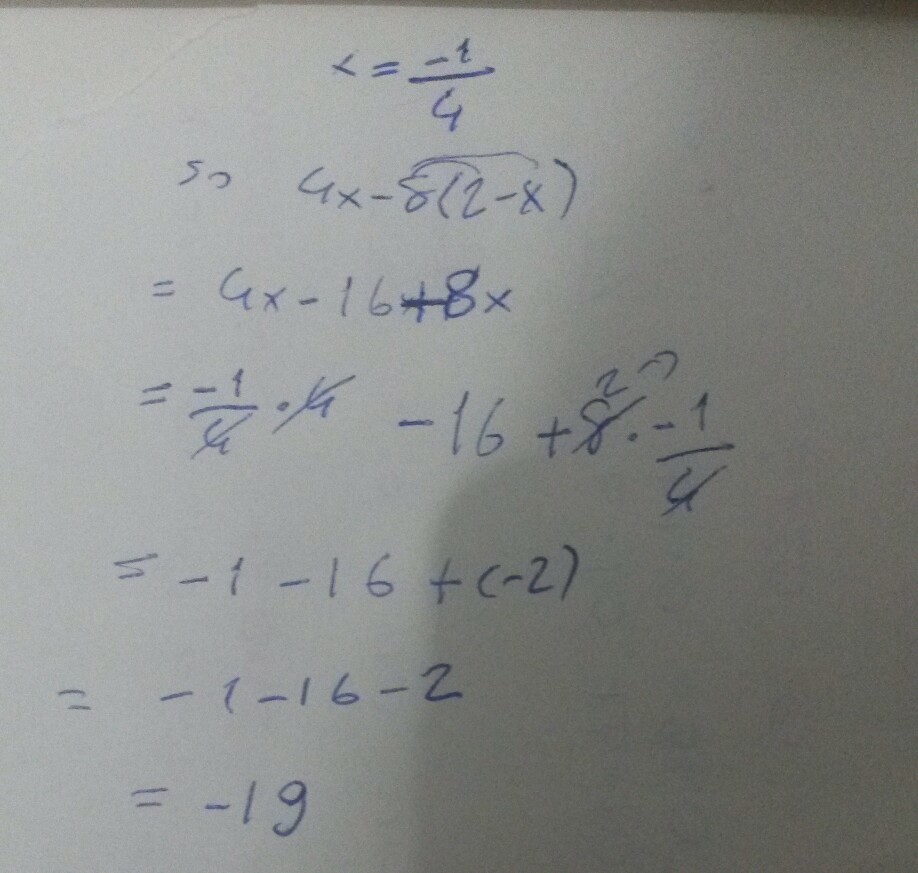 x = -1/4
so 4x-8(2-x)
= 4x-16+8x
= -1/4 · 4 -16 + 8 · -1/4 2
= -1 -16 + (-2)
= -1-16-2
= -19